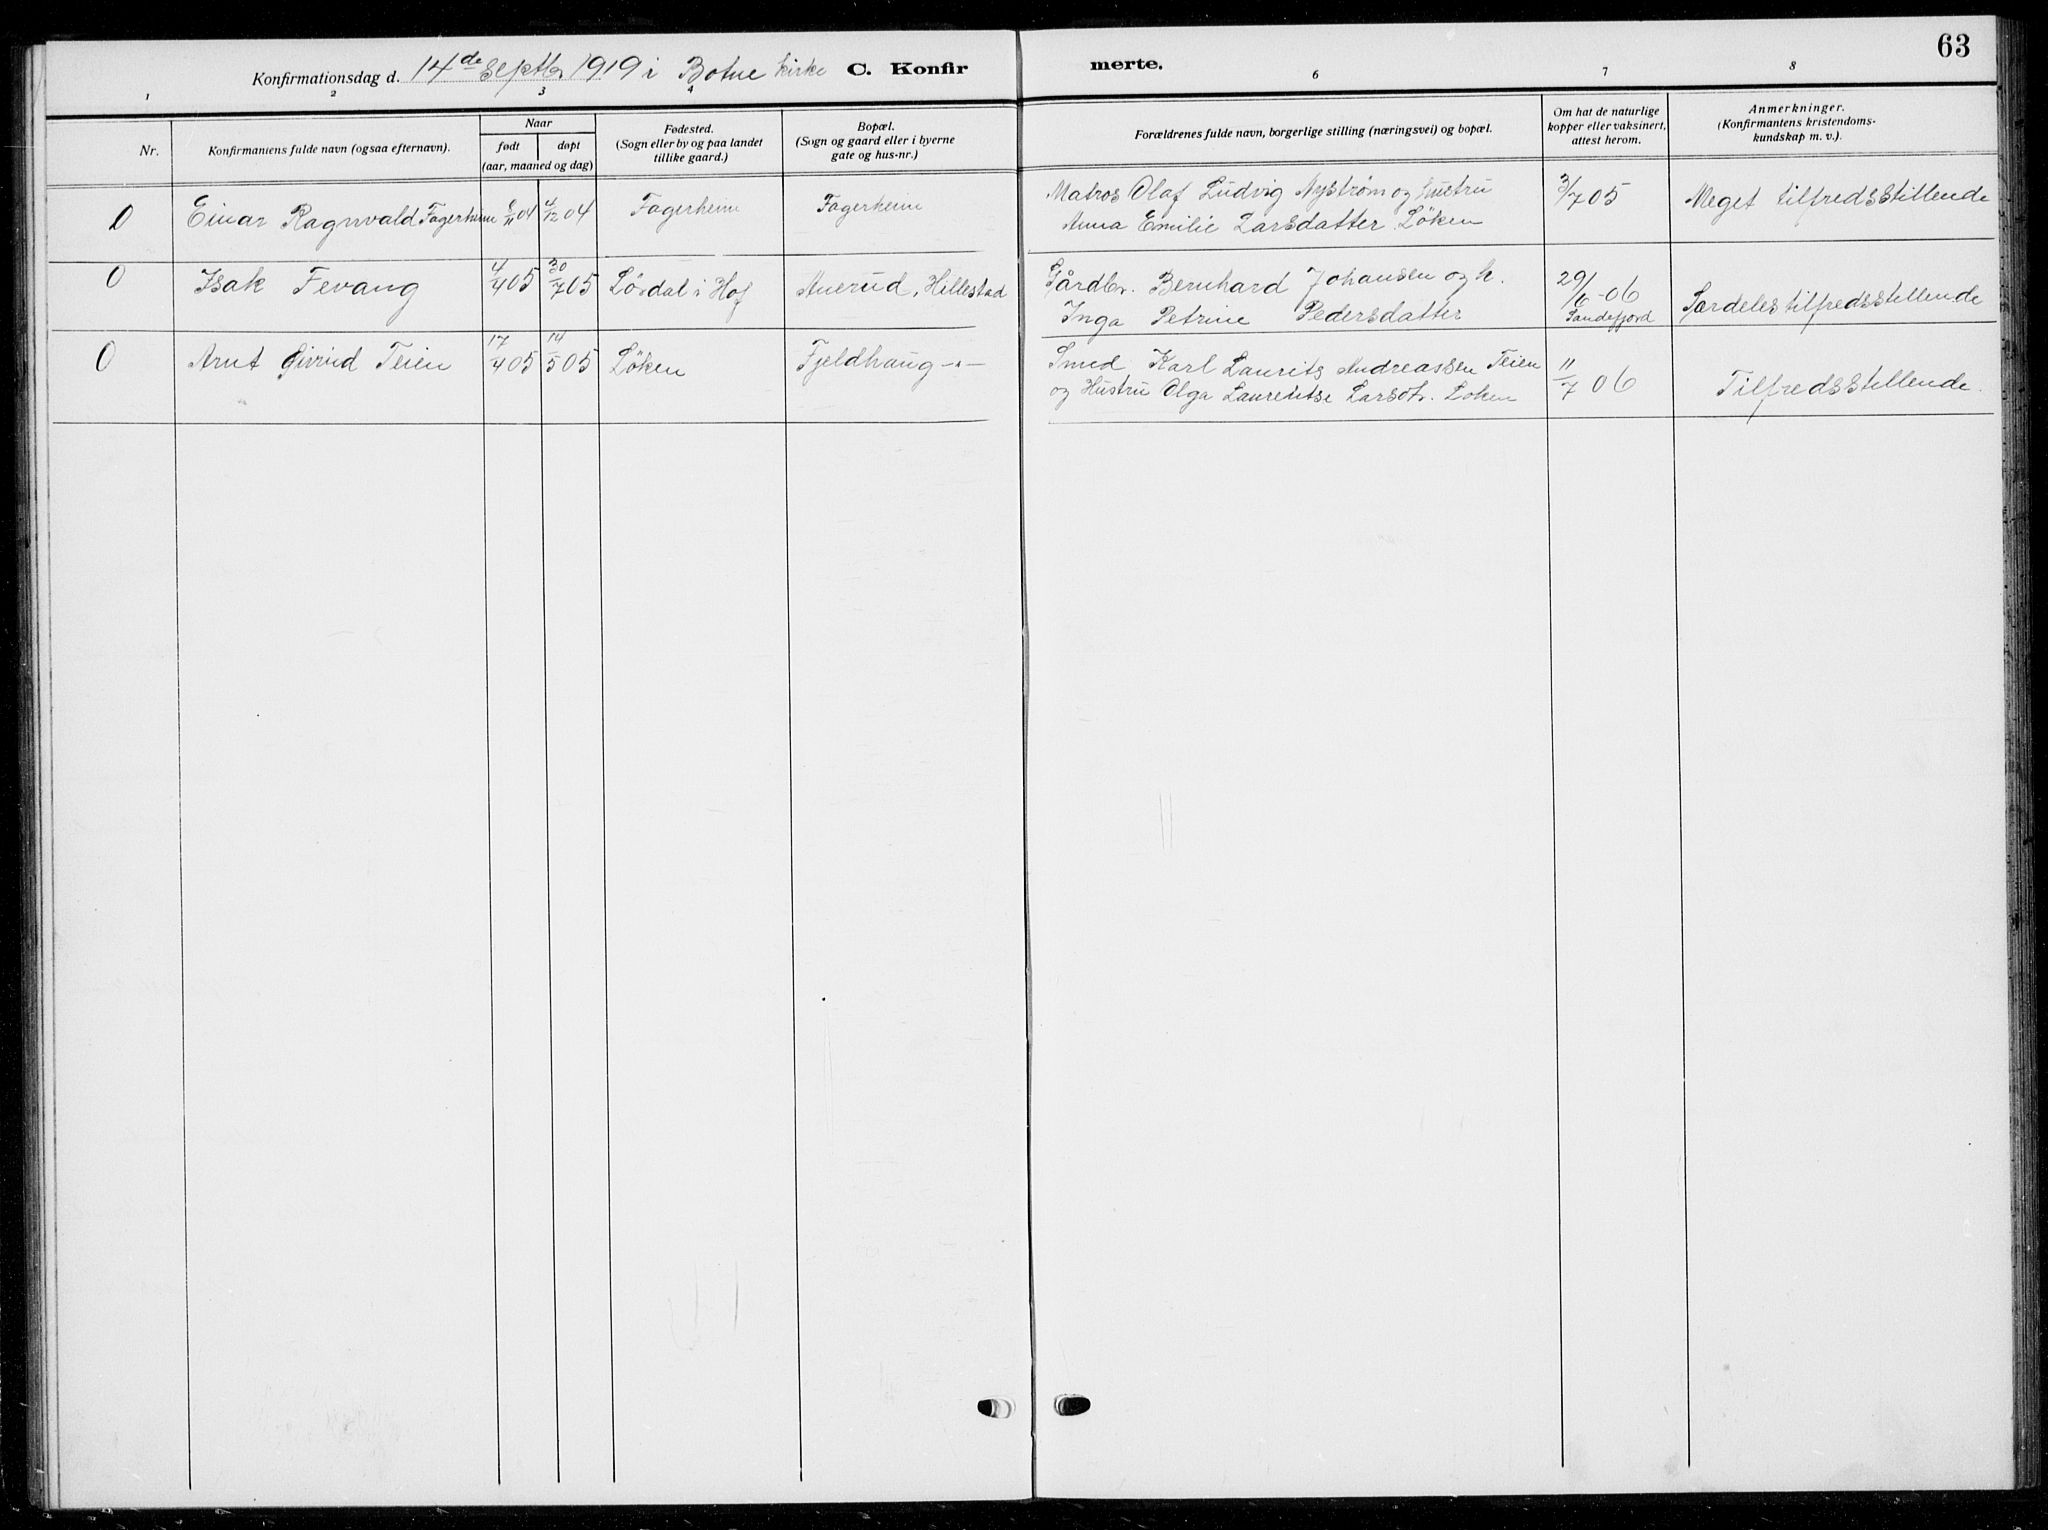 63
Konfirmationsdag d. 14de Septbr 1919 i Botne kirke C. Konfir merte.
1 2 3 4 6 7 8
Nr.
Konfirmantens fulde navn (ogsaa efternavn).
Naar
født døpt
(aar, maaned og dag)
Fødested.
(Sogn eller by og paa landet
tillike gaard.)
Bopæl.
(Sogn og gaard eller i byerne
gate og hus-nr.)
Forældrenes fulde navn, borgerlige stilling (næringsvei) og bopæl.
Om hat de naturlige
kopper eller vaksinert,
attest herom.
Anmerkninger.
(Konfirmantens kristendoms-
kundskap m. v.).
0 Einar Ragnvald Fagerheim /11 04 4/12 04 Fagerheim Fagerheim Matros Olaf Ludvig Nystrøm og Hustru 3/7 05 Meget tilfredsstillende
Anna Emilie Larsdatter Løken
0 Isak Fevang 4/4 05 30/7 05 Lørdal i Hof Auerud, Hillestad Gårdbr. Bernhard Johansen og h. 29/6-06 Særdeles tilfredsstillende
Inga Petrine Pedersdatter Sandefjord
0 Arnt Eivind Teien 17/4 05 14/5 05 Løken Fjeldhaug -"- Smed Karl Laurits Andreassen Teien 11/7 06 Tilfredsstillende.
og Hustru Olga Laurentse Larsdtr. Løken